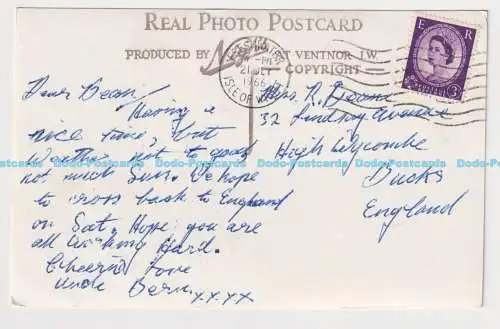 REAL PHOTO POSTCARD
PRODUCED BY Nigh VENTNOR I.W.
COPYRIGHT
E R
POSTAGE 3D
21 OCT
1966
ISLE OF WIGHT
Dear Dean
Having a
nice time, but
Weather not to good
not much Sun. We hope
to cross back to England
on Sat. Hope you are
all working Hard.
Cheerio Love
Uncle Bern. xxxx
R. Deane
32 Lindsay Avenue
High Wycombe
Bucks
England
Dodo-Postcards Dodo-Postcards Dodo-Postcards Dodo-Postcards